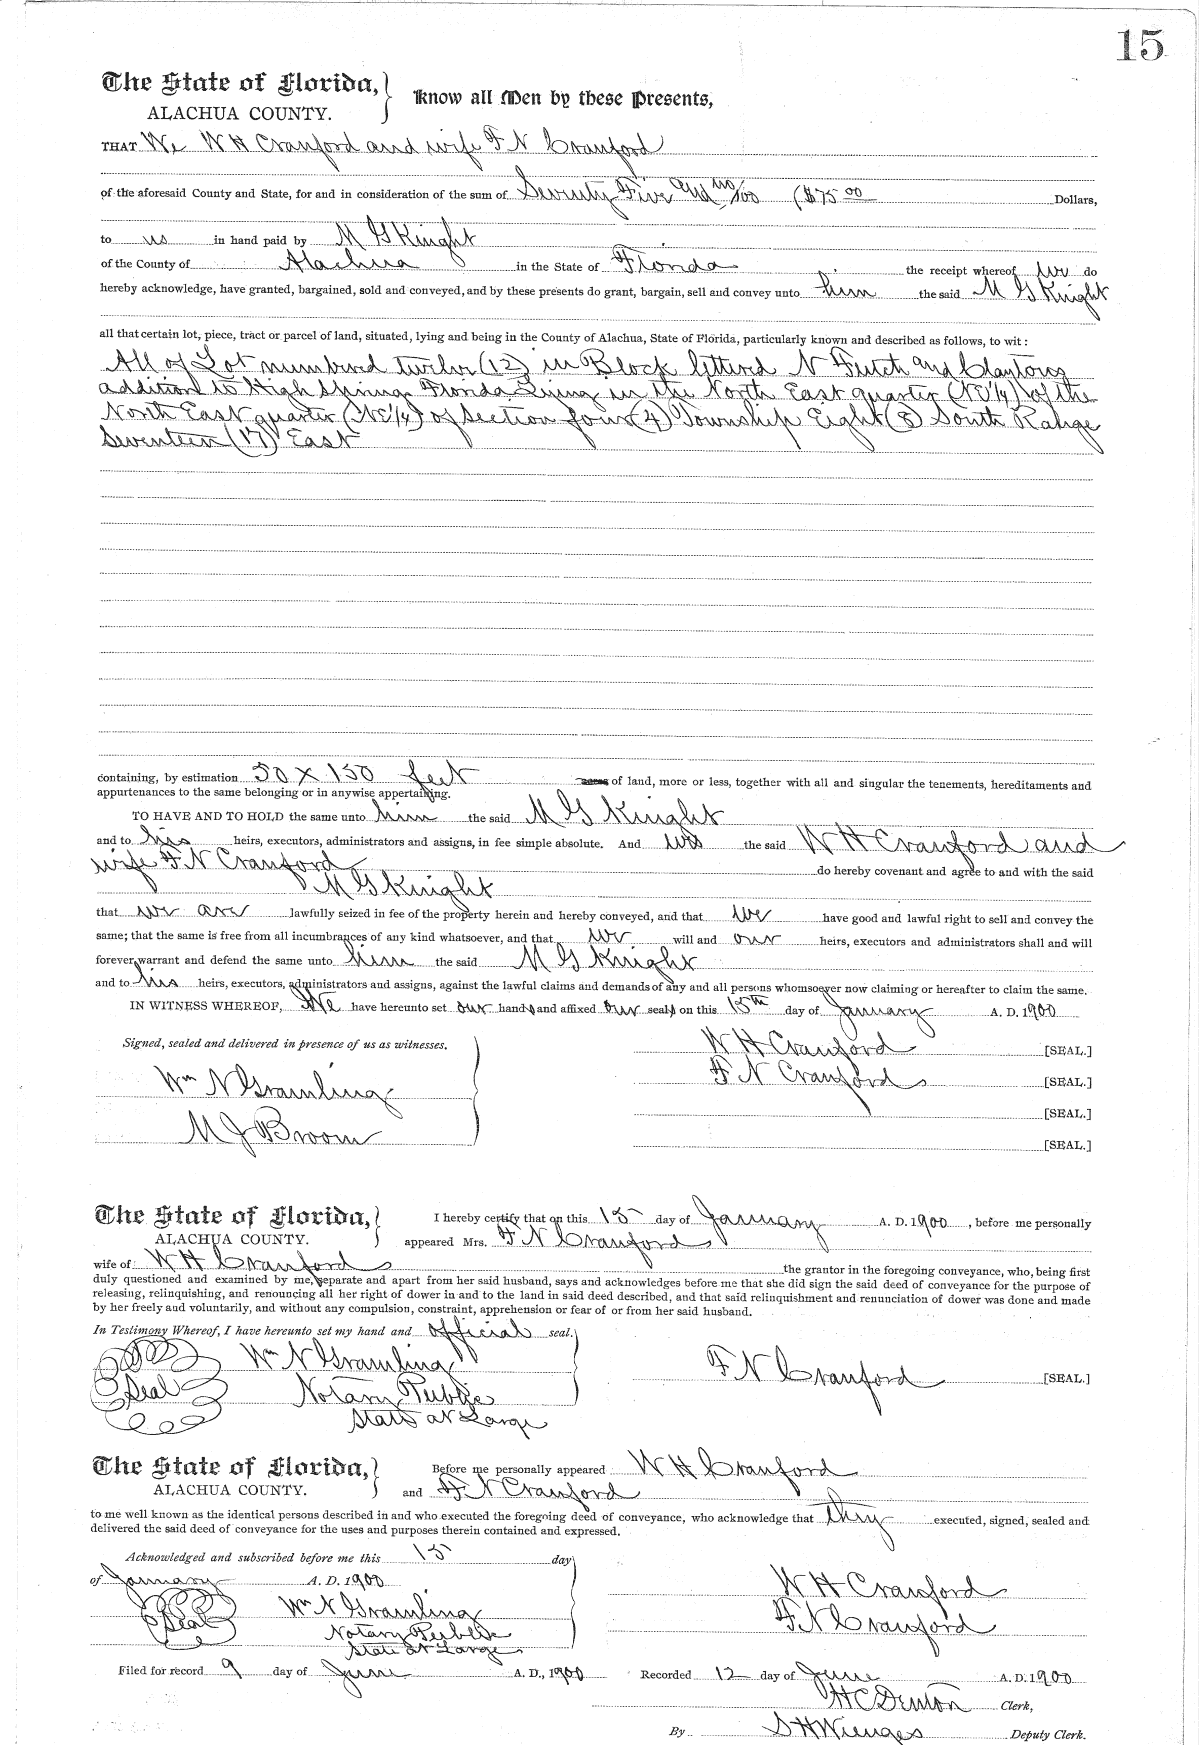 15
The State of Florida,
ALACHUA COUNTY.
Know all Men by these Presents,
THAT We W H Cranford and wife F N Cranford
of the aforesaid County and State, for and in consideration of the sum of Seventy Five and no/100 ($75.00 Dollars,
to us in hand paid by M G Knight
of the County of Alachua in the State of Florida the receipt whereof we do
hereby acknowledge, have granted, bargained, sold and conveyed, and by these presents do grant, bargain, sell and convey unto him the said M G Knight
all that certain lot, piece, tract or parcel of land, situated, lying and being in the County of Alachua, State of Florida, particularly known and described as follows, to wit:
All of Lot numbered twelve (12) in Block lettered N Futch and Claytons
addition to High Springs Florida Lying in the North East quarter (NE1/4) of the
North East quarter (NE1/4) of Section four (4) Township Eight (8) South Range
Seventeen (17) East
containing, by estimation 50 x 150 feet acres of land, more or less, together with all and singular the tenements, hereditaments and
appurtenances to the same belonging or in anywise appertaining.
TO HAVE AND TO HOLD the same unto him the said M G Knight
and to his heirs, executors, administrators and assigns, in fee simple absolute. And we the said W H Cranford and
wife F N Cranford do hereby covenant and agree to and with the said
M G Knight
that we are lawfully seized in fee of the property herein and hereby conveyed, and that we have good and lawful right to sell and convey the
same; that the same is free from all incumbrances of any kind whatsoever, and that we will and our heirs, executors and administrators shall and will
forever warrant and defend the same unto him the said M G Knight
and to his heirs, executors, administrators and assigns, against the lawful claims and demands of any and all persons whomsoever now claiming or hereafter to claim the same.
IN WITNESS WHEREOF, We have hereunto set our hands and affixed our seals on this 15th day of January A. D. 1900
Signed, sealed and delivered in presence of us as witnesses.
W H Cranford [SEAL.]
Wm N Gramling
F N Cranford [SEAL.]
[SEAL.]
M J Broom
[SEAL.]
The State of Florida,
ALACHUA COUNTY.
I hereby certify that on this 15 day of January A. D. 1900, before me personally
appeared Mrs. F N Cranford
wife of W H Cranford the grantor in the foregoing conveyance, who, being first
duly questioned and examined by me, separate and apart from her said husband, says and acknowledges before me that she did sign the said deed of conveyance for the purpose of
releasing, relinquishing, and renouncing all her right of dower in and to the land in said deed described, and that said relinquishment and renunciation of dower was done and made
by her freely and voluntarily, and without any compulsion, constraint, apprehension or fear of or from her said husband.
In Testimony Whereof, I have hereunto set my hand and official seal.
Wm N Gramling
F N Cranford [SEAL.]
Seal Notary Public
State at Large
The State of Florida,
ALACHUA COUNTY.
Before me personally appeared W H Cranford
and F N Cranford
to me well known as the identical persons described in and who executed the foregoing deed of conveyance, who acknowledge that they executed, signed, sealed and
delivered the said deed of conveyance for the uses and purposes therein contained and expressed.
Acknowledged and subscribed before me this 15 day
of January A. D. 1900
W H Cranford
Wm N Gramling
Seal
F N Cranford
Notary Public
State at Large
Filed for record 9 day of June A. D., 1900 Recorded 12 day of June A. D. 1900
H C Denton Clerk,
By S H Wienges Deputy Clerk.